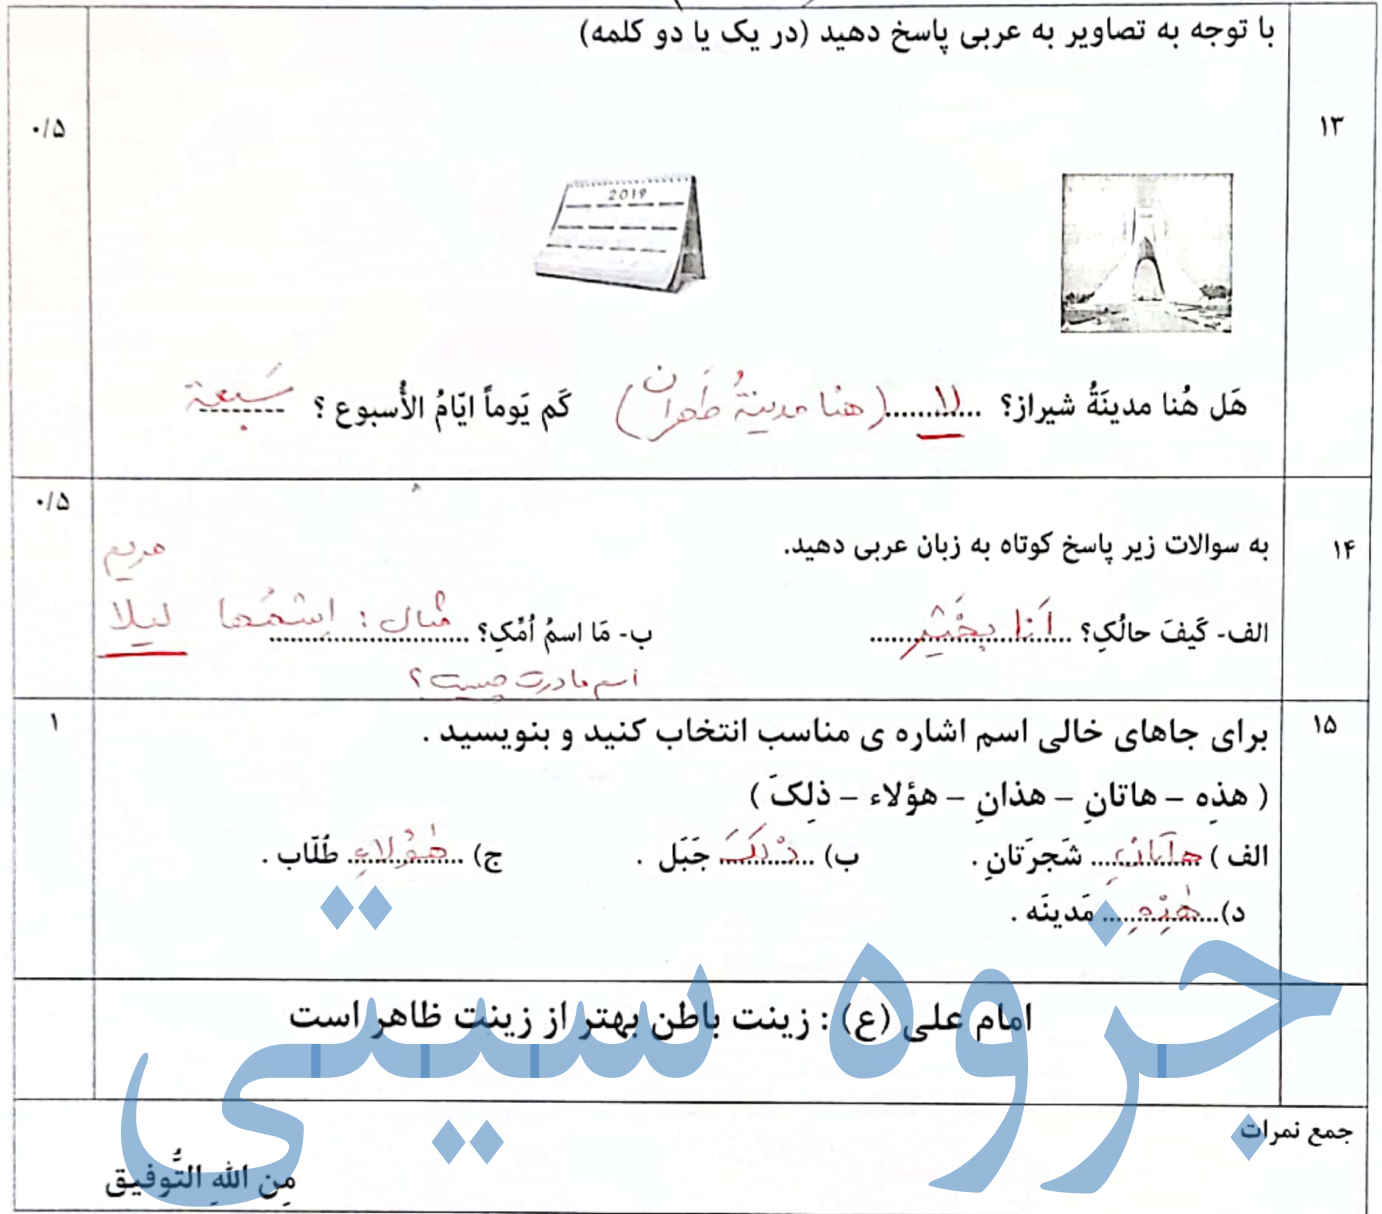 با توجه به تصاویر به عربی پاسخ دهید (در یک یا دو کلمه)
۱۳
۰/۵
2019
هَل هُنا مدینَةُ شیراز؟ ....لا.... (هنا مدینةُ طَهران) کَم یَوماً ایّامُ الأُسبوع ؟ سَبعة
۰/۵
۱۴
به سوالات زیر پاسخ کوتاه به زبان عربی دهید.
مریم
الف- کَیفَ حالُکِ؟ أنا بِخَیْر ب- مَا اسمُ اُمِّکِ؟ مثال : اِسْمُها لیلا
اسم مادرت چیست؟
۱
۱۵
برای جاهای خالی اسم اشاره ی مناسب انتخاب کنید و بنویسید .
( هذِه – هاتانِ – هذانِ – هؤلاء – ذلِکَ )
الف ) هاتانِ شَجرَتانِ . ب) ذلِکَ جَبَل . ج) هٰؤلاءِ طُلّاب .
د) هٰذِهِ مَدینَه .
امام علی (ع) : زینت باطن بهتر از زینت ظاهر است
جزوه سیتی
جمع نمرات
مِن اللهِ التُّوفیق